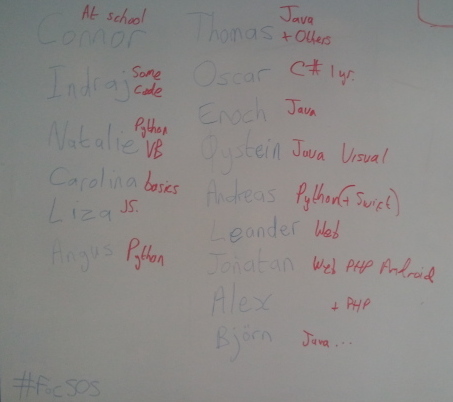 Connor At school
Indraj Some Code
Natalie Python VB
Carolina basics
Liza JS.
Angus Python
Thomas Java + Others
Oscar C# 1yr.
Enoch Java
Oystein Java Visual
Andreas Python(+ Swift)
Leander Web
Jonatan Web PHP Android
Alex + PHP
Björn Java...
#FOCSOS